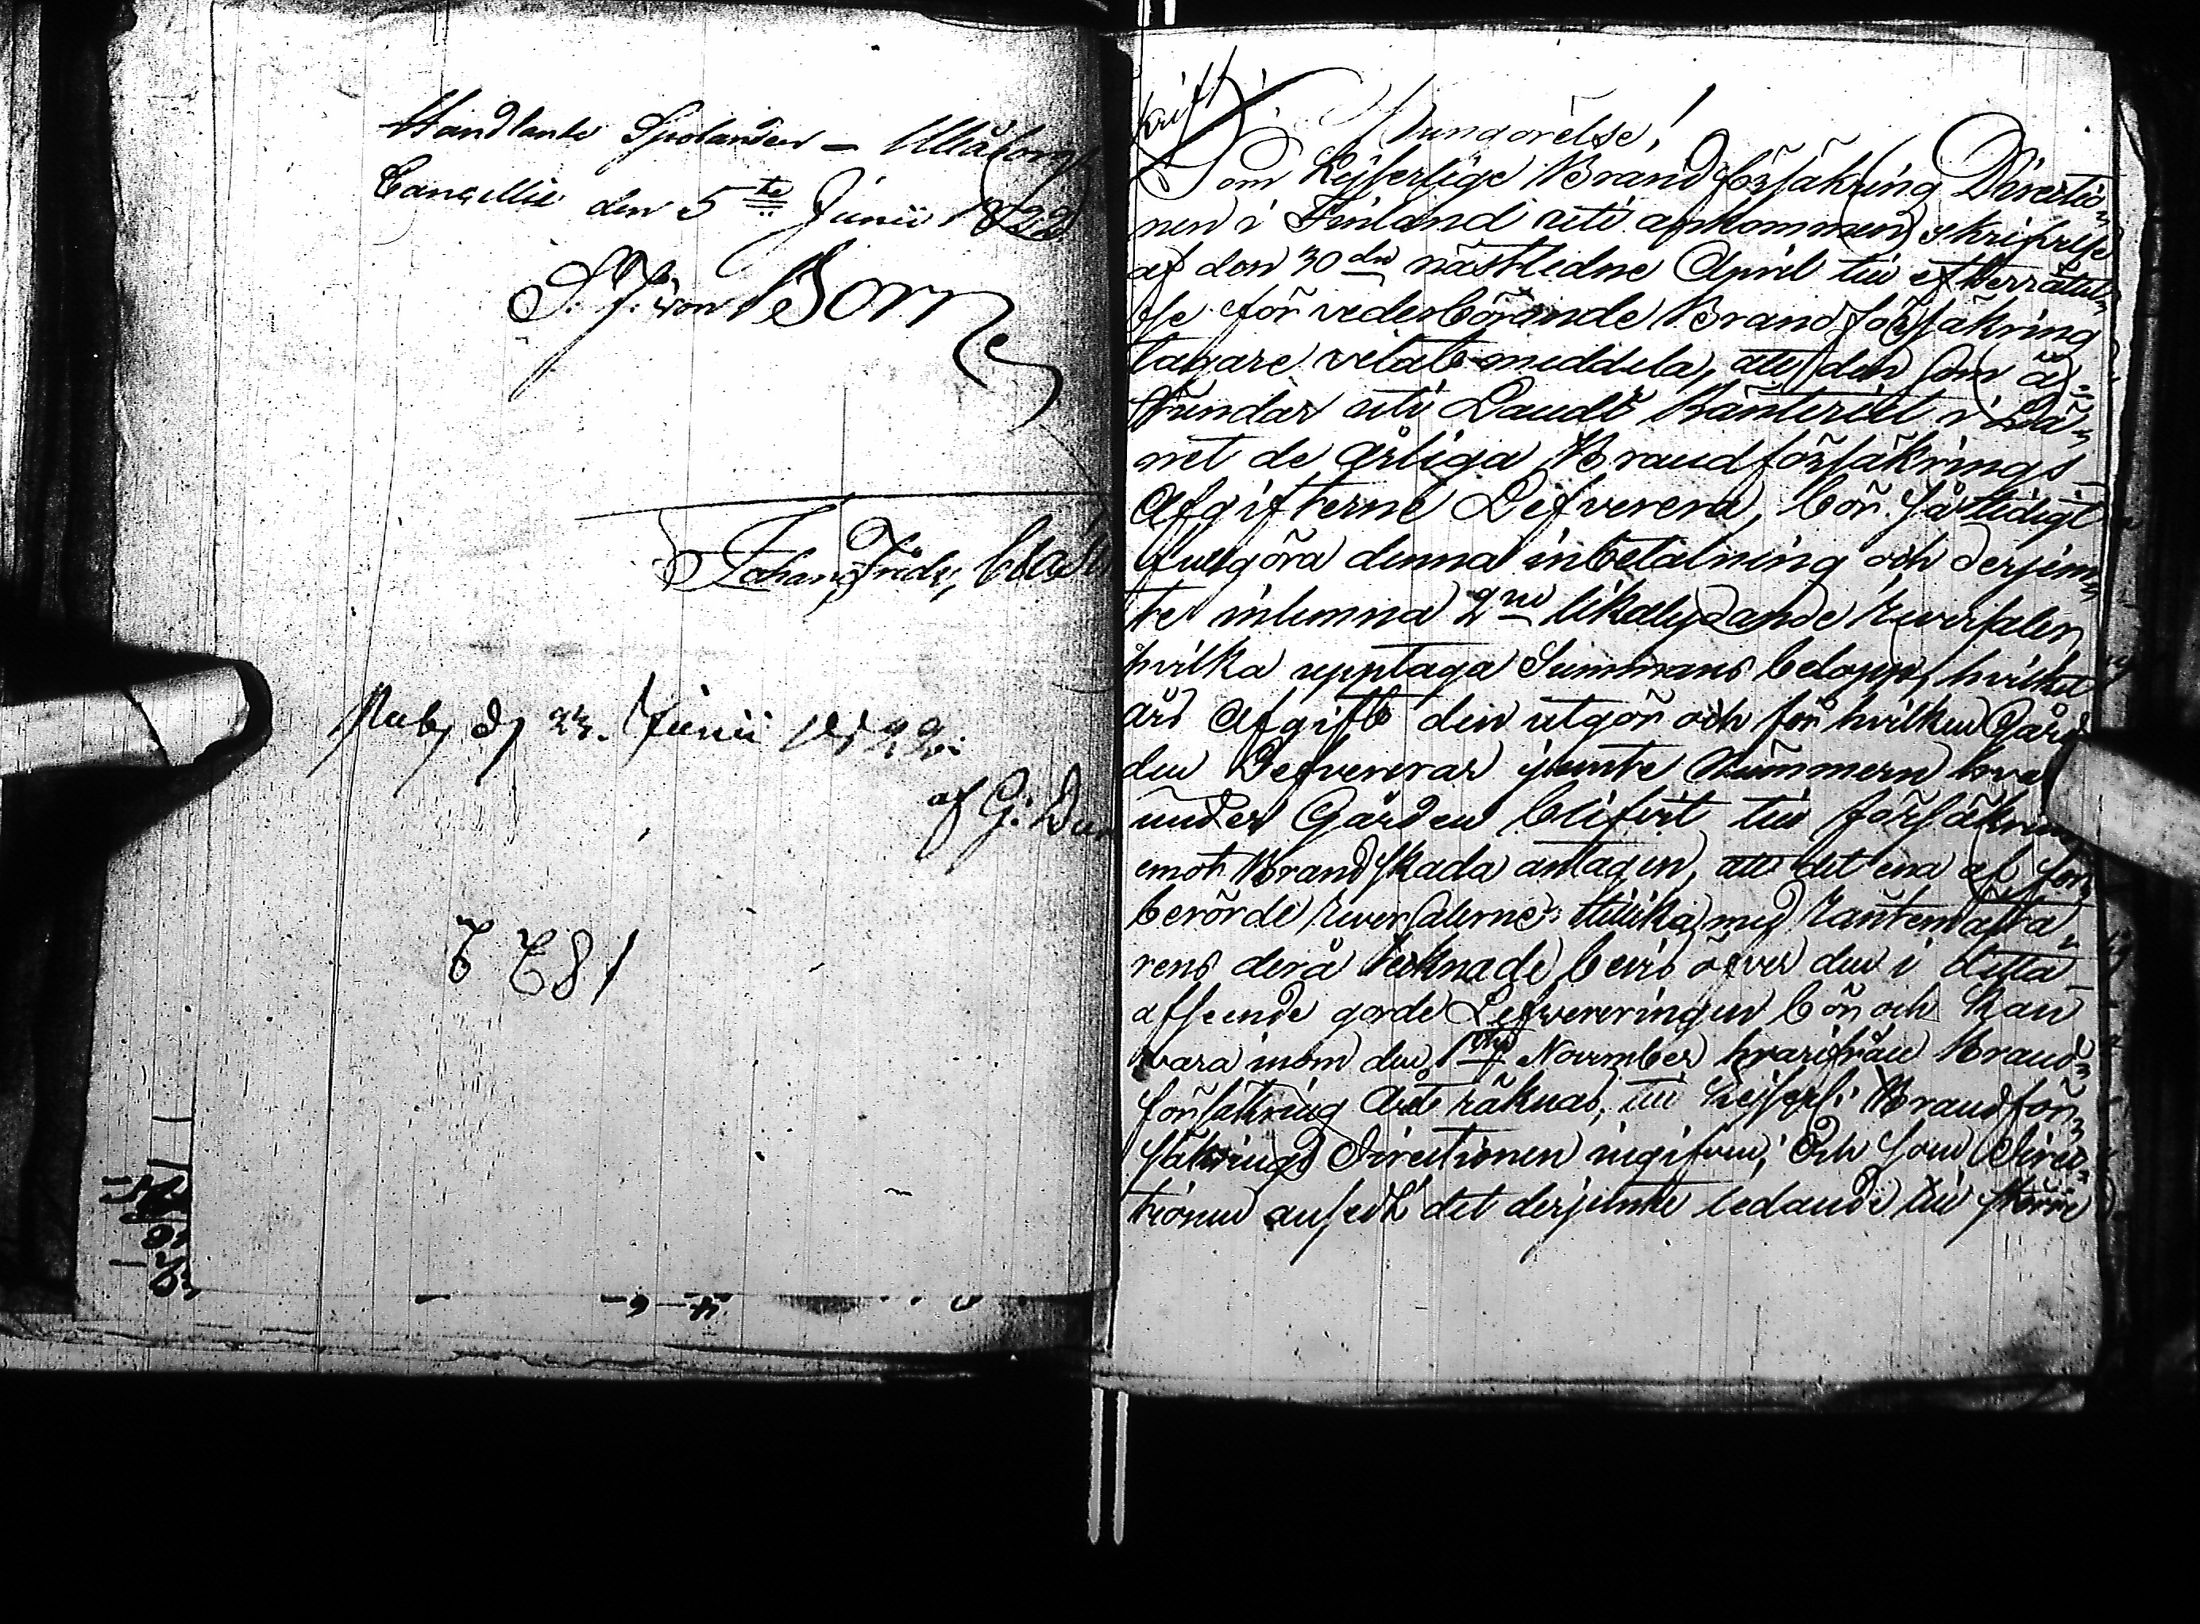 Handlande Uleåborg
Cancellie den 5te Junii 1822
S. F. von Born
Johan Frdr,
Publ d 23. Junii 1822.
af G:
Kungörelse!
Som Kejserlige Brandförsäkring Directio-
nen i Finland uti ankommen skrifvelse
af den 30de nästledne April till efterrättel-
se för vederbörande Brandförsäkring
tagare velat meddela, att den som å-
stundar uti Landt Ränteriet i Lä-
net de årliga Brandförsäkrings-
Afgifterne Lefverera, bör så tidigt
fullgöra denna inbetalning och derjem-
te inlemna 2ne likalydande reversaler,
hvilka upptaga Summans belopp, hvilket
års Afgift den utgör och för hvilken Går-
den Lefvereras jemte Nummern hvar-
under Gården blifvit till försäkring
emot Brandskada antagen, att det ena af förr
berörde reversalerne tillika med Räntemästa-
rens derå teknade bevis öfver den i detta
afseende gjorde Lefvereringen bör och kan
vara inom den 1sta November hvarifrån Brand-
försäkring Året räknas, till Kejserl: Brandför-
säkrings Directionen ingifven; Och som Direc-
tionen ansedt det derjemte ledande till större